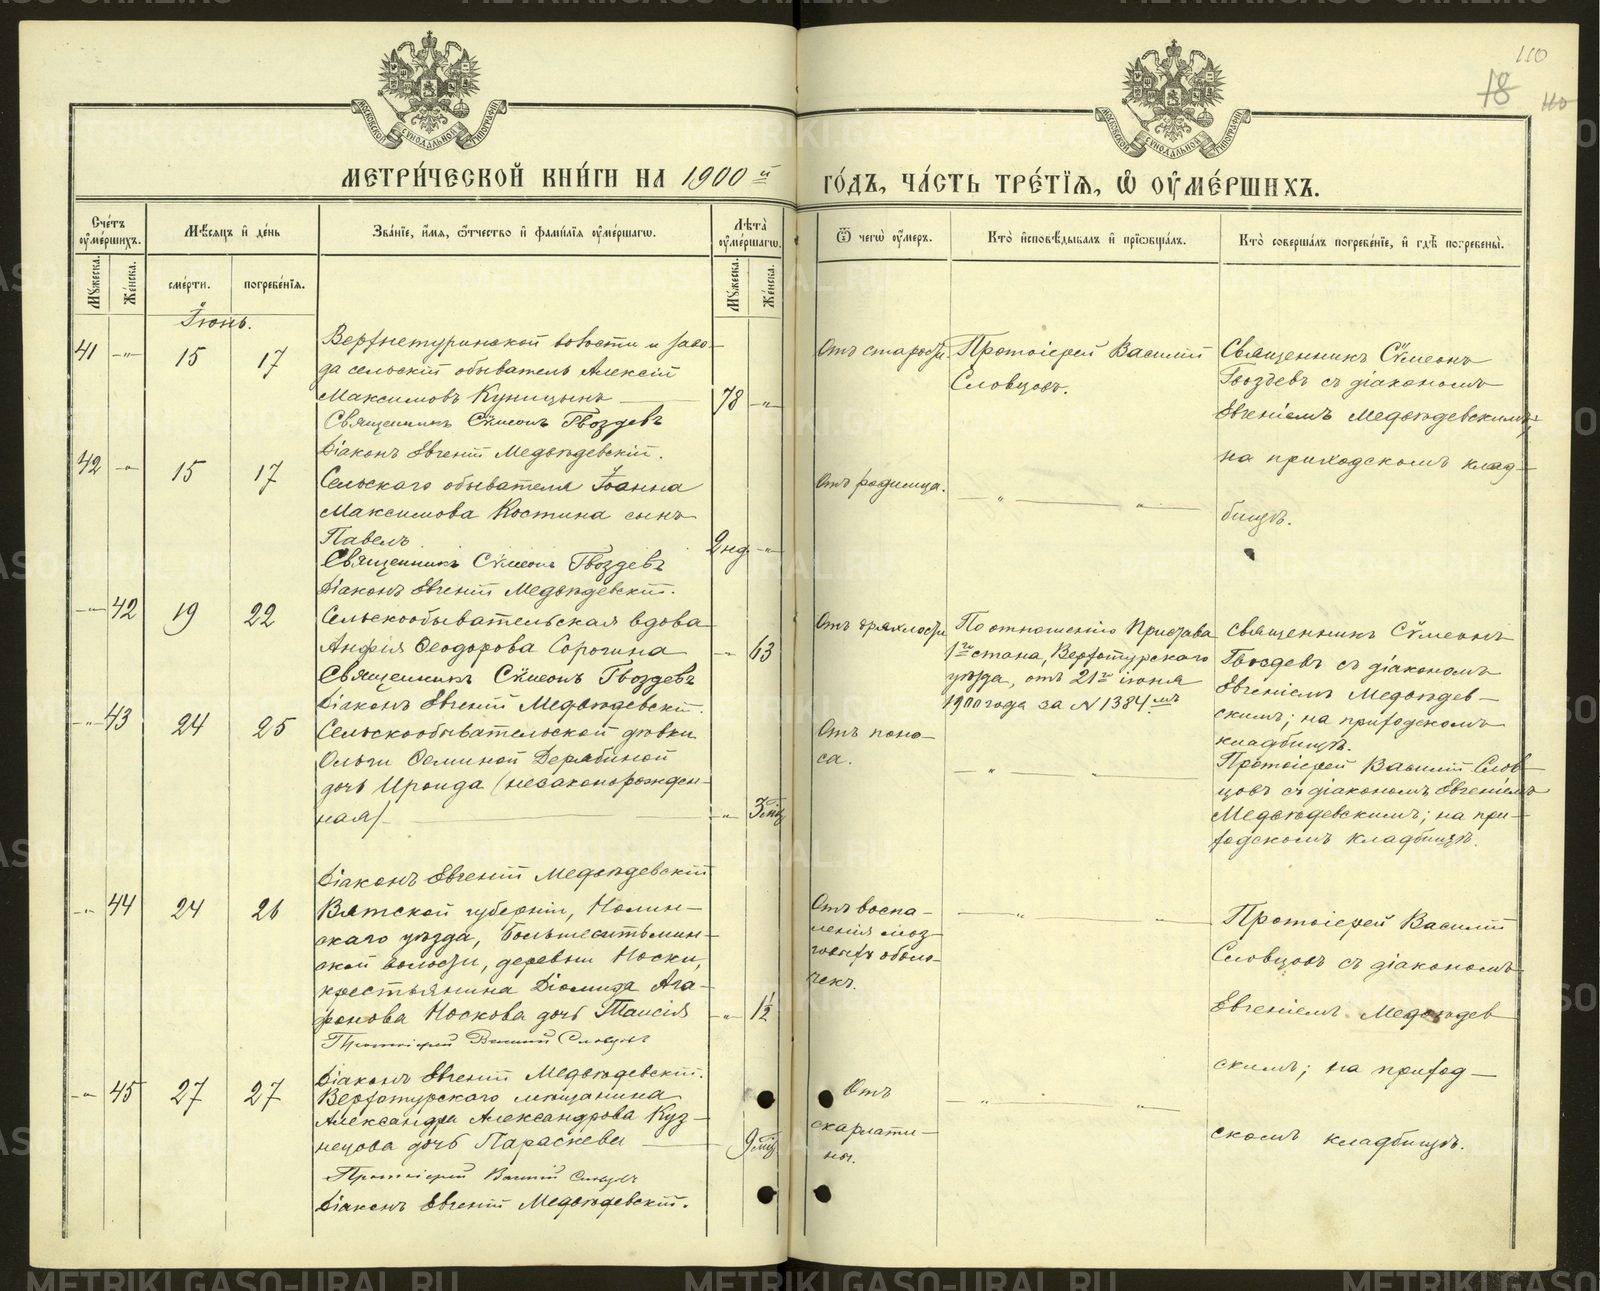 110
18
110
МОСКОВСКОЙ СѴНОДАЛЬНОЙ ТИПОГРАФІИ
МОСКОВСКОЙ СѴНОДАЛЬНОЙ ТИПОГРАФІИ
МЕТРИ́ЧЕСКОЙ КНИ́ГИ НА 1900й
ГО́ДЪ, ЧА́СТЬ ТРЕ́ТІѦ, Ѡ҆ ОУ҆МЕ́РШИХЪ.
Сче́тъ оу҆ме́ршихъ.
Мꙋ́жеска.
Же́нска.
Мѣ́сяцъ и҆ де́нь
сме́рти.
погребе́нїѧ.
Зва́нїе, и҆́мѧ, ѻ҆́тчество и҆ фами́лїѧ оу҆ме́ршагѡ.
Лѣ́та оу҆ме́ршагѡ.
Мꙋ́жеска.
Же́нска.
Ѿ чегѡ̀ оу҆́меръ.
Кто̀ и҆сповѣ́дывалъ и҆ прїѡбща́лъ.
Кто̀ соверша́лъ погребе́нїе, и҆ гдѣ̀ погребены̀.
Іюнь.
41 —"— 15 17
Верхнетуринской волости и заво-
да сельскій обыватель Алексій
Максимовъ Куницынъ — 78 —"—
Священникъ Сѵмеонъ Гвоздевъ
Діаконъ Евгеній Медвѣдевскій.
Отъ старости.
Протоіерей Василій
Словцовъ.
Священникъ Сѵмеонъ
Гвоздевъ съ діакономъ
Евгеніемъ Медвѣдевскимъ;
на приходскомъ клад-
бищѣ.
42 —"— 15 17
Сельскаго обывателя Іоанна
Максимова Костина сынъ
Павелъ. 2 нед. —"—
Священникъ Сѵмеонъ Гвоздевъ
Діаконъ Евгеній Медвѣдевскій.
Отъ родимца.
— " — " —
—"— 42 19 22
Сельскообывательская вдова
Анфія Ѳеодорова Сорогина —"— 63
Священникъ Сѵмеонъ Гвоздевъ
Діаконъ Евгеній Медвѣдевскій.
Отъ дряхлости
По отношенію Пристава
1го стана, Верхотурскаго
уѣзда, отъ 21го іюня
1900 года за N 1384мъ
Священникъ Сѵмеонъ
Гвоздевъ съ діакономъ
Евгеніемъ Медвѣдев-
скимъ; на приходскомъ
кладбищѣ.
—"— 43 24 25
Сельскообывательской дѣвки
Ольги Ѳоминой Дерябиной
дочь Ираида (незаконорожден-
ная) — —"— 3 мѣс.
Діаконъ Евгеній Медвѣдевскій
Отъ поно-
са.
— " — " —
Протоіерей Василій Слов-
цовъ съ діакономъ Евгеніемъ
Медвѣдевскимъ; на при-
ходскомъ кладбищѣ.
—"— 44 24 26
Вятской губерніи, Нолин-
скаго уѣзда, Большеситьмин-
ской волости, деревни Носки,
крестьянина Діомида Ага-
фонова Носкова дочь Таисія —"— 1½
Протоіерей Василій Словцовъ
Діаконъ Евгеній Медвѣдевскій.
Отъ воспа-
ленія моз-
говыхъ оболо-
чекъ.
— " — " —
Протоіерей Василій
Словцовъ съ діакономъ
Евгеніемъ Медвѣдев
скимъ; на приход-
скомъ кладбищѣ.
—"— 45 27 27
Верхотурскаго мѣщанина
Александра Александрова Куз-
нецова дочь Параскева — 9 мѣс.
Протоіерей Василій Словцовъ
Діаконъ Евгеній Медвѣдевскій.
Отъ
скарлати-
ны.
— " — " —
METRIKI.GASO-URAL.RU